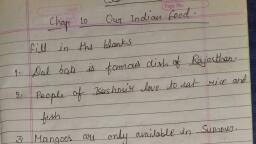 Chap 10 Our Indian Food.
Fill in the blanks
1. Dal bati is famous dish of Rajasthan.
2. People of Kashmir love to eat rice and
fish
3 Mangoes are only available in Summer.